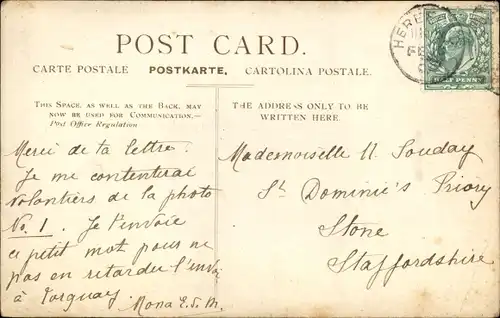 POST CARD.
CARTE POSTALE POSTKARTE, CARTOLINA POSTALE.
THIS SPACE, AS WELL AS THE BACK, MAY
NOW BE USED FOR COMMUNICATION.—
Post Office Regulation
THE ADDRESS ONLY TO BE
WRITTEN HERE.
HERE
FE
HALF PENNY
Merci de ta lettre.
Je me contenterai
volontiers de la photo
No. 1. Je t'envoie
ce petit mot pour ne
pas en retarder l'envoi
à Torquay. Mona E.S.M.
Mademoiselle Souday
St Dominic's Priory
Stone
Staffordshire